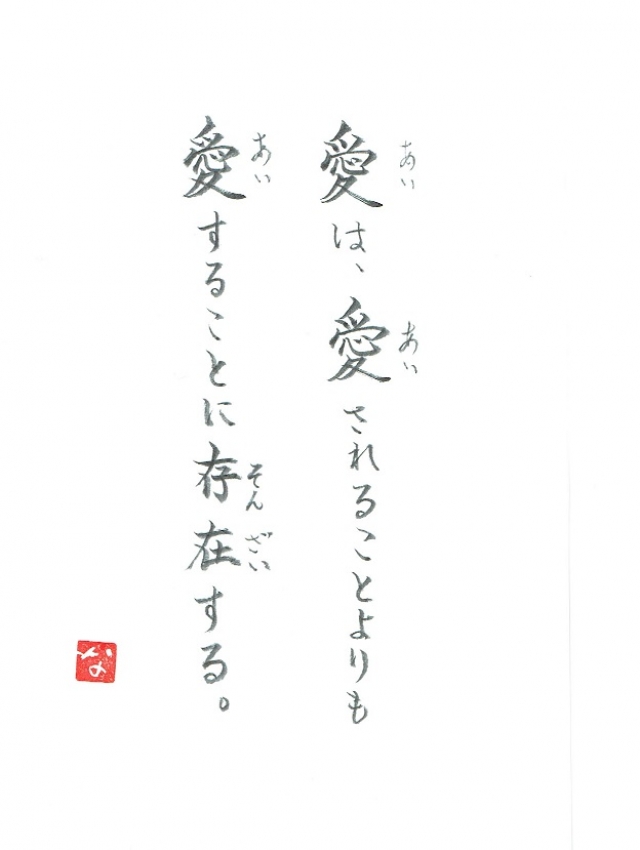 愛は、愛されることよりも
あい
あい
愛することに存在する。
あい
そんざい
な